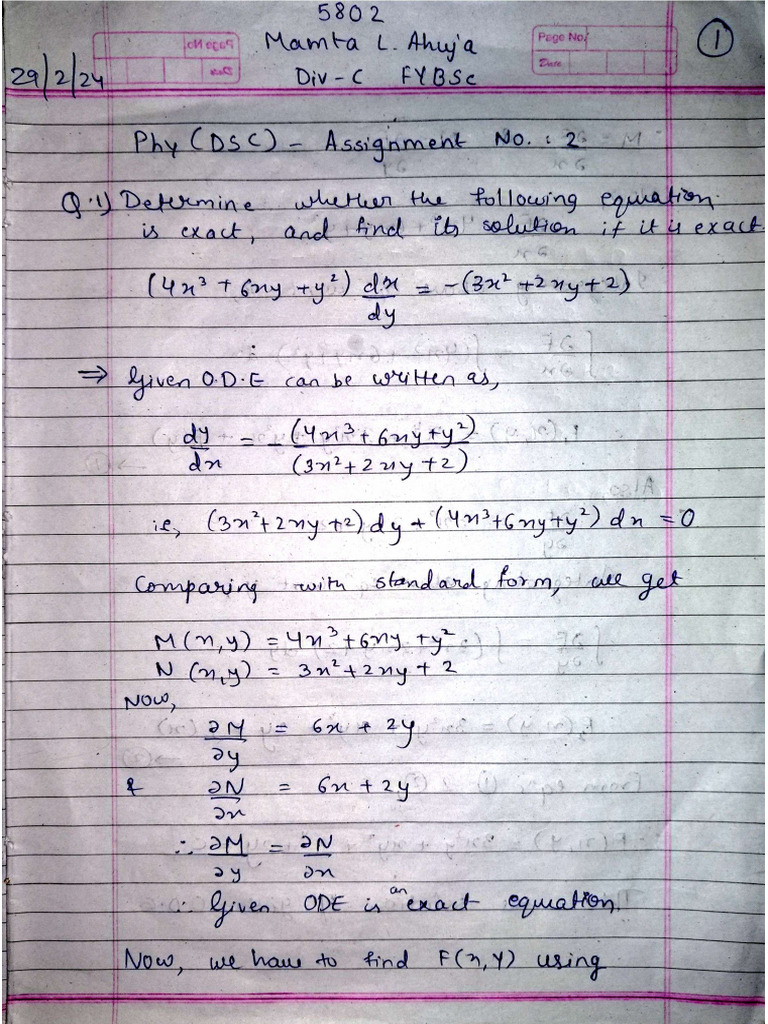 5802
Mamta L. Ahuja
Page No.
①
29/2/24
Div-C FYBSc
Date
Phy (DSC) - Assignment No. : 2
Q.1) Determine whether the following equation
is exact, and find its solution if it is exact.
(4x³ + 6xy + y²) dx/dy = -(3x² + 2xy + 2)
⇒ Given O.D.E can be written as,
dy/dx = -(4x³ + 6xy + y²)/(3x² + 2xy + 2)
ie, (3x² + 2xy + 2) dy + (4x³ + 6xy + y²) dx = 0
Comparing with standard form, we get
M(x,y) = 4x³ + 6xy + y²
N (x,y) = 3x² + 2xy + 2
Now,
∂M/∂y = 6x + 2y
& ∂N/∂x = 6x + 2y
∴ ∂M/∂y = ∂N/∂x
∴ Given ODE is an exact equation.
Now, we have to find F(x,y) using